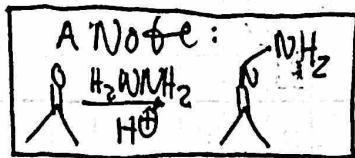 A Note:
O
H₂NNH₂
H⊕
N
NH₂